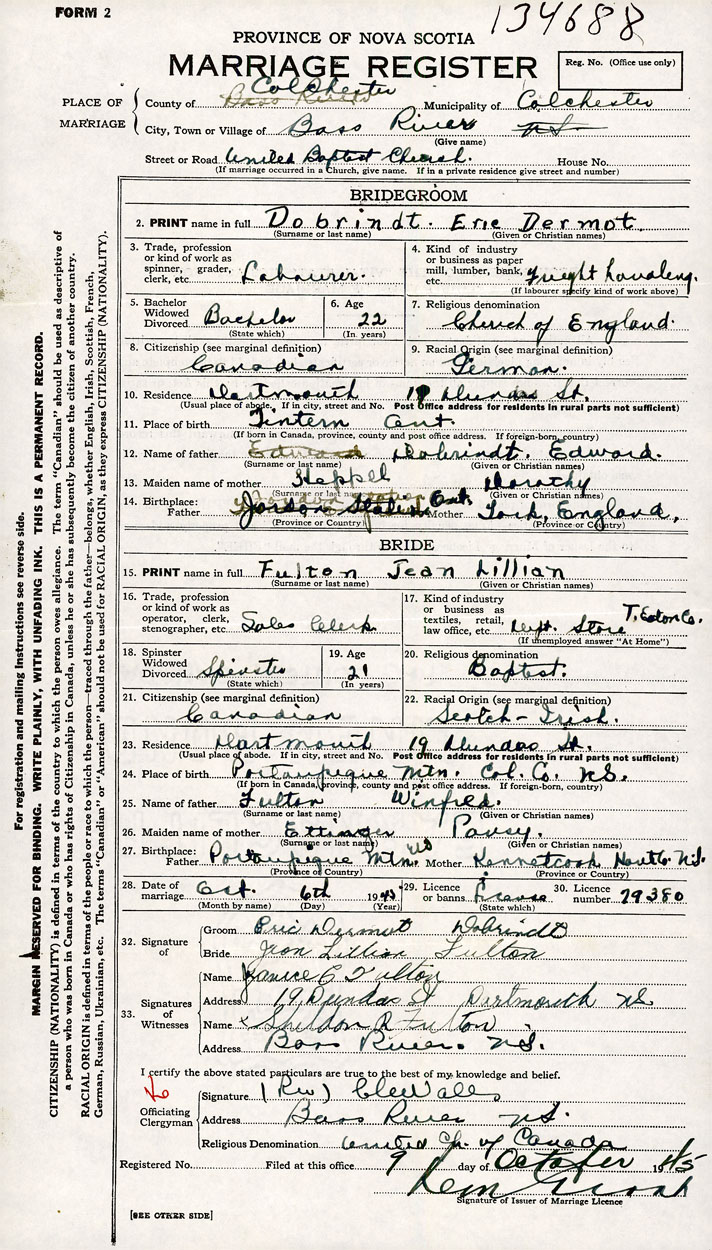 FORM 2
134688
PROVINCE OF NOVA SCOTIA
MARRIAGE REGISTER
Reg. No. (Office use only)
PLACE OF MARRIAGE
Colchester
County of Bass River Municipality of Colchester
City, Town or Village of Bass River N.S.
(Give name)
Street or Road United Baptist Church. House No.
(If marriage occurred in a Church, give name. If in a private residence give street and number)
BRIDEGROOM
2. PRINT name in full Dobrindt. Eric Dermot
(Surname or last name) (Given or Christian names)
3. Trade, profession or kind of work as spinner, grader, clerk, etc. Labourer.
4. Kind of industry or business as paper mill, lumber, bank, etc.
(If labourer specify kind of work above)
5. Bachelor Widowed Divorced Bachelor
(State which)
6. Age 22
(In years)
7. Religious denomination
Church of England.
8. Citizenship (see marginal definition)
Canadian
9. Racial Origin (see marginal definition)
German.
10. Residence Dartmouth 19 Dundas St.
(Usual place of abode. If in city, street and No. Post Office address for residents in rural parts not sufficient)
11. Place of birth Tintern Ont.
(If born in Canada, province, county and post office address. If foreign-born, country)
12. Name of father Edward Dobrindt. Edward.
(Surname or last name) (Given or Christian names)
13. Maiden name of mother Heppel Dorothy
(Surname or last name) (Given or Christian names)
14. Birthplace:
Father Jordan Station Ont. Mother York, England,
(Province or Country) (Province or Country)
BRIDE
15. PRINT name in full Fulton Jean Lillian
(Surname or last name) (Given or Christian names)
16. Trade, profession or kind of work as operator, clerk, stenographer, etc. Sales Clerk
17. Kind of industry or business as textiles, retail, law office, etc. Dept. Store T. Eaton Co.
(If unemployed answer "At Home")
18. Spinster Widowed Divorced Spinster
(State which)
19. Age 21
(In years)
20. Religious denomination
Baptist.
21. Citizenship (see marginal definition)
Canadian
22. Racial Origin (see marginal definition)
Scotch-Irish.
23. Residence Dartmouth 19 Dundas St.
(Usual place of abode. If in city, street and No. Post Office address for residents in rural parts not sufficient)
24. Place of birth Portaupique Mtn. Col. Co. N.S.
(If born in Canada, province, county and post office address. If foreign-born, country)
25. Name of father Fulton Winfred.
(Surname or last name) (Given or Christian names)
26. Maiden name of mother Ettinger
(Surname or last name) (Given or Christian names)
27. Birthplace:
Father Portaupique Mtn. NS Mother Kennetcook Hants N.S.
(Province or Country) (Province or Country)
28. Date of marriage Oct. 6th 1945
(Month by name) (Day) (Year)
29. Licence or banns. License
(State which)
30. Licence number 79380
32. Signature of
Groom Eric Dermot Dobrindt
Bride Jean Lillian Fulton
33. Signatures of Witnesses
Name Janice C Fulton
Address 19 Dundas St Dartmouth N.S.
Name x Sheldon R Fulton
Address Bass River. N.S.
I certify the above stated particulars are true to the best of my knowledge and belief.
Officiating Clergyman
Signature (Rev)
Address Bass River N.S.
Religious Denomination United Ch. of Canada
Registered No. Filed at this office 9 day of October 1945
Signature of Issuer of Marriage Licence
[SEE OTHER SIDE]
For registration and mailing instructions see reverse side.
MARGIN RESERVED FOR BINDING. WRITE PLAINLY, WITH UNFADING INK. THIS IS A PERMANENT RECORD.
CITIZENSHIP (NATIONALITY) is defined in terms of the country to which the person owes allegiance. The term "Canadian" should be used as descriptive of
a person who was born in Canada or who has rights of Citizenship in Canada, unless he or she has subsequently become the citizen of another country.
RACIAL ORIGIN is defined in terms of the people or race to which the person—traced through the father—belongs, whether English, Irish, Scottish, French,
German, Russian, Ukrainian, etc. The terms "Canadian" or "American" should not be used for RACIAL ORIGIN, as they express CITIZENSHIP (NATIONALITY).